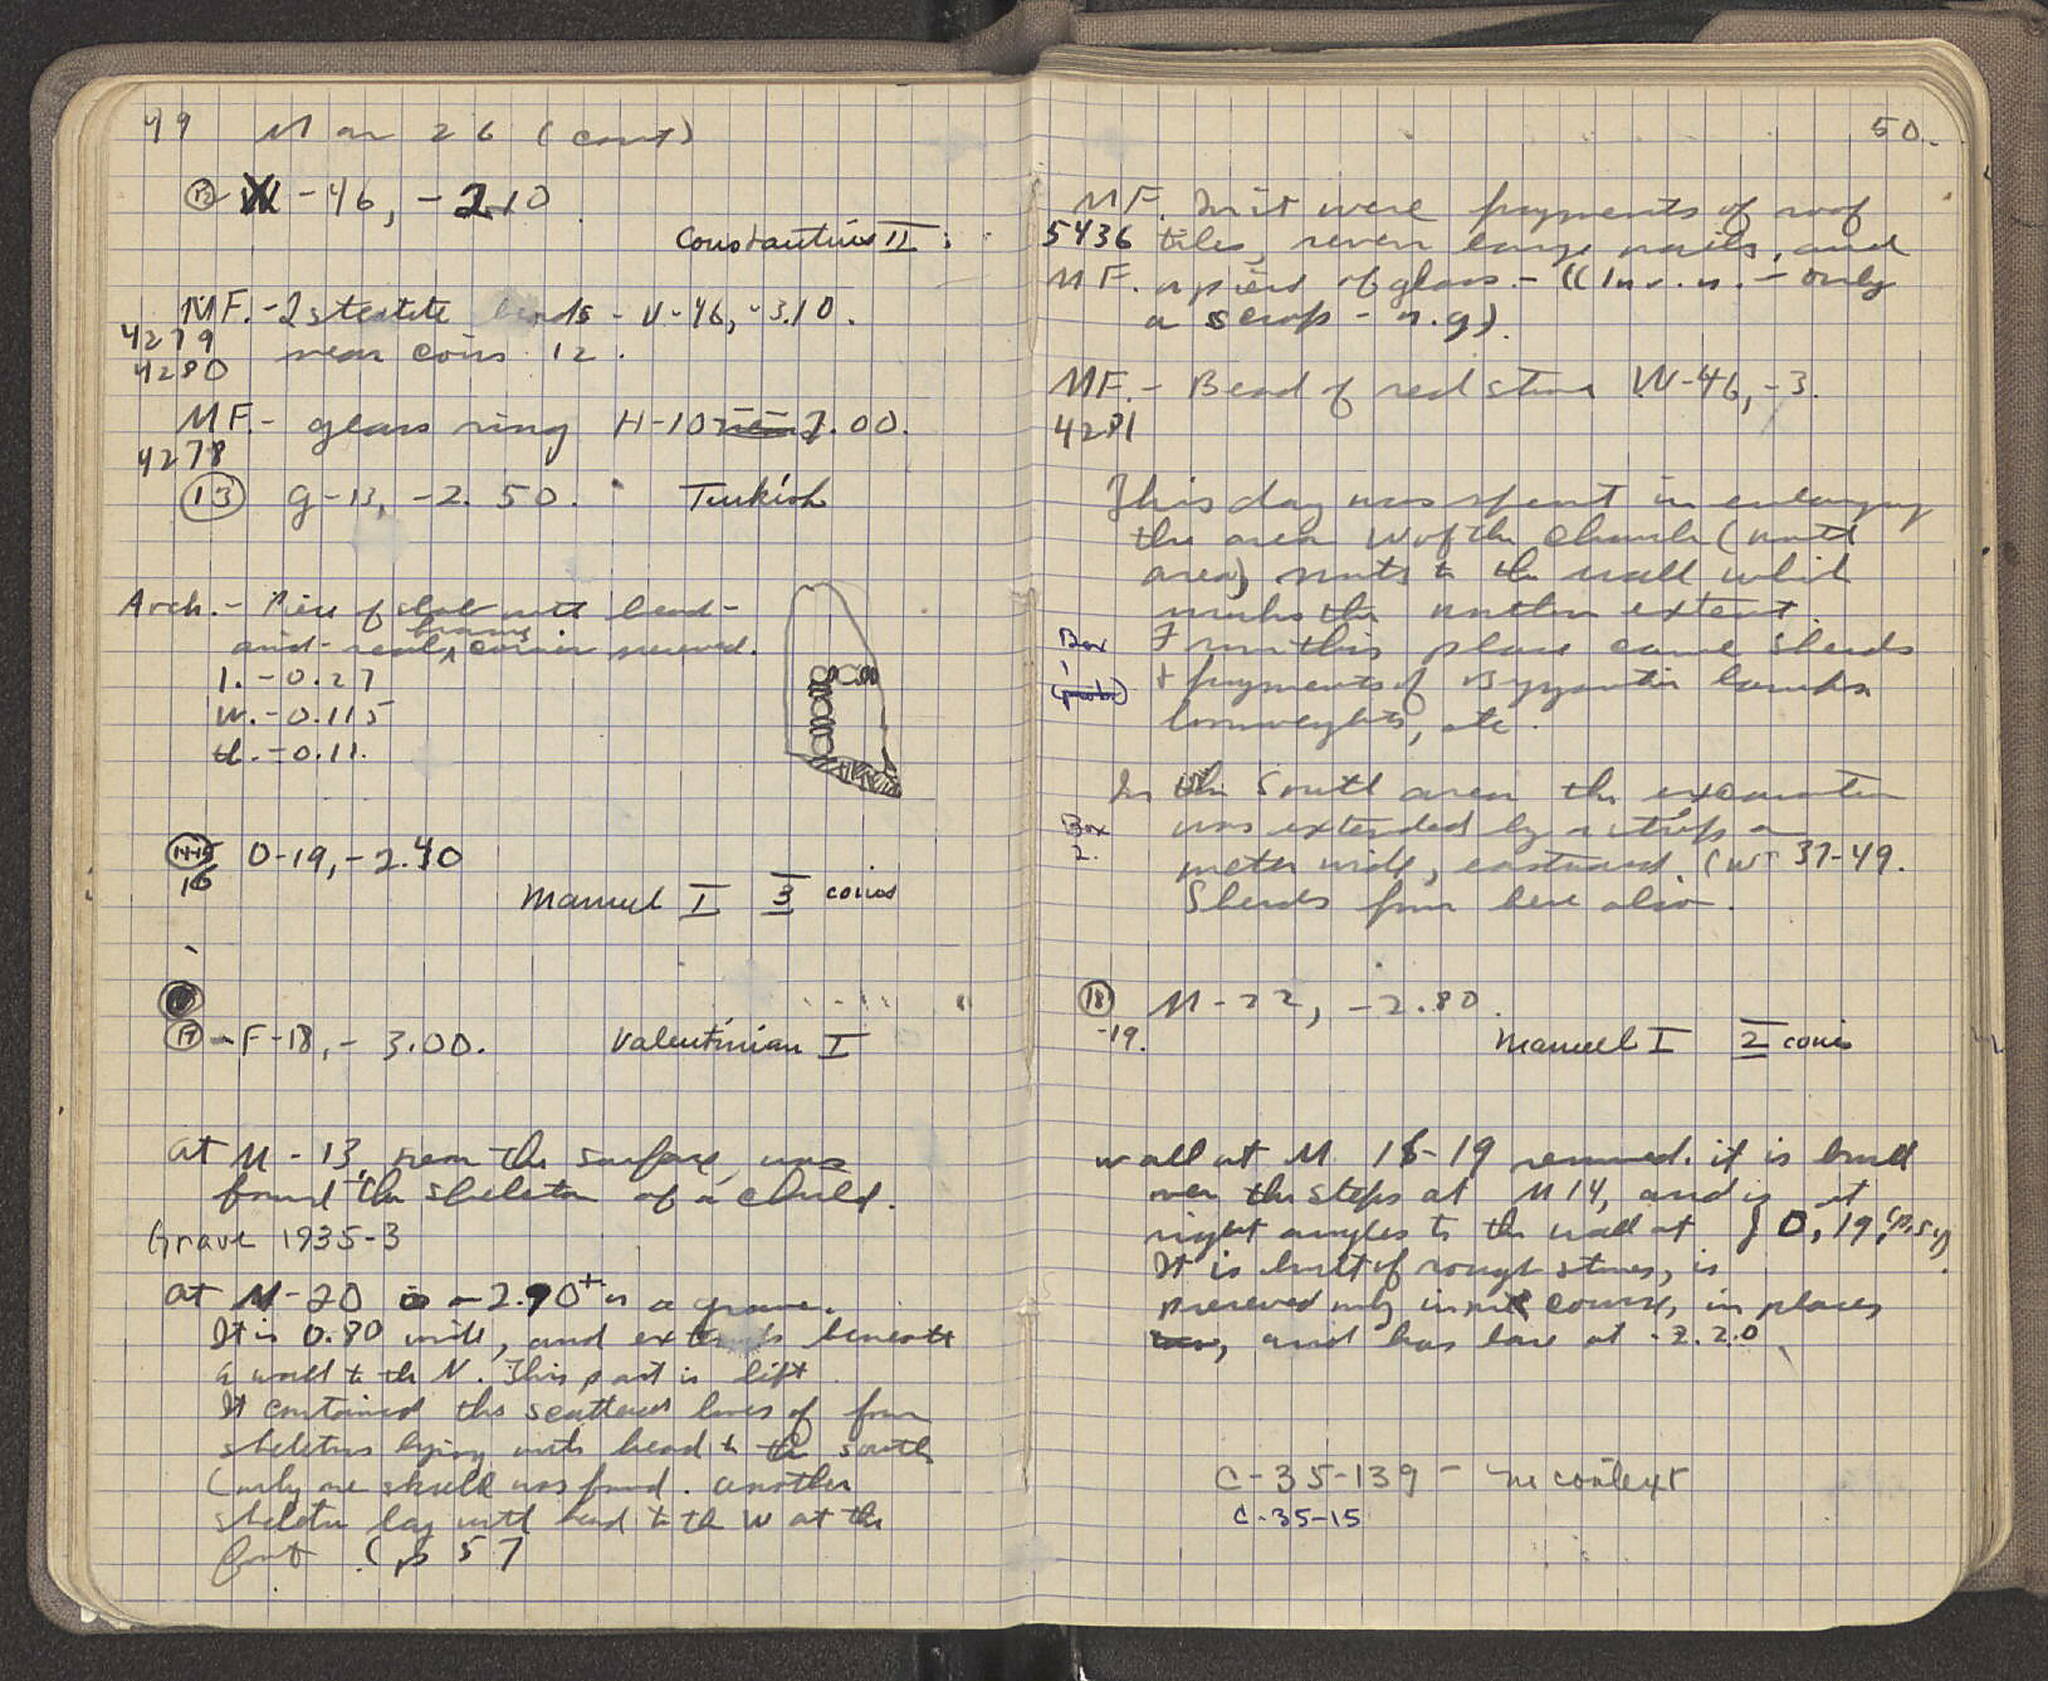 49 Mar 26 (cont)
12 W-46, -2.10
Constantius II
MF. - 2 steatite beads - V-46, -3.10.
4279
4280 near coin 12.
MF. - glass ring H-10 7.00.
4278
13 G-13, -2.50. Turkish
Arch. - Piece of slab with bead-
and-reel, corner preserved.
l. - 0.27
w. - 0.115
th. - 0.11.
14-15 O-19, -2.40
16
Manuel I 3 coins
17 - F-18, - 3.00. Valentinian I
At M-13, near the surface, was
found the skeleton of a child.
Grave 1935-3
At N-20 -2.90+ is a grave.
It is 0.80 wide, and extends beneath
a wall to the N. This part is left
It contained the scattered bones of four
skeletons lying with head to the south
(only one skull was found. Another
skeleton lay with head to the W at the
foot. (p 57
50.
MF. In it were fragments of roof
5436 tiles, seven large nails, and
MF. a piece of glass - ((Inv. n. - only
a scrap - n.g).
MF. - Bead of red stone W-46, -3.
4281
This day was spent in enlarging
the area W of the church (north
area) to the wall which
marks the northern extent.
Box From this place came sherds
1 + fragments of Byzantine
loomweights, etc.
In the South area the excavation
Box was extended by a strip a
2. meter wide, eastward. (W 37-49.
Sherds from here also.
18 M-22, -2.80.
-19.
Manuel I 2 coins
Wall at M 18-19 removed. it is built
over the steps at M14, and is at
right angles to the wall at O, 19
It is built of rough stones, is
preserved only in one course, in places
and has base at -2.20.
C-35-139 - no context
C-35-15